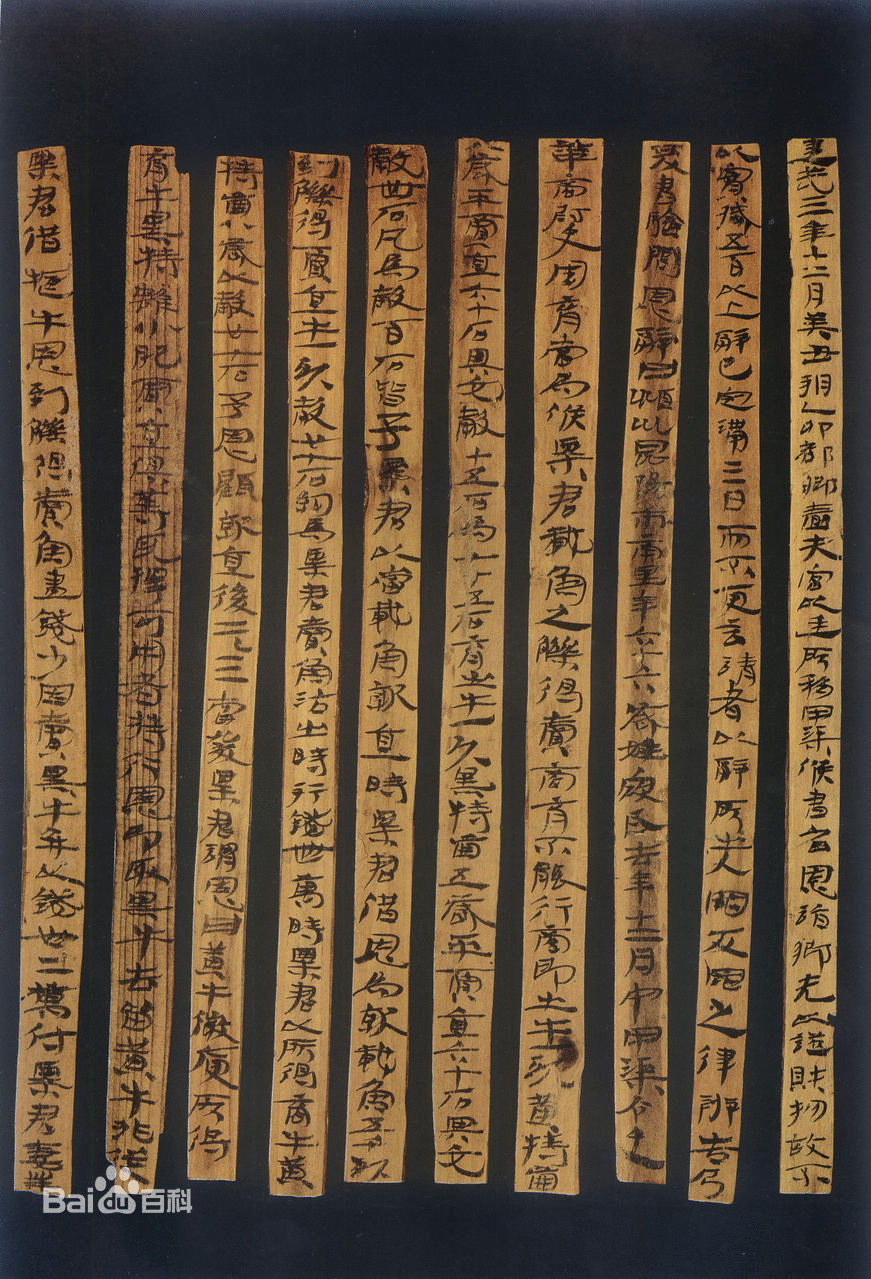 建武三年十二月癸丑朔乙卯都鄉嗇夫宮以廷所移甲渠候書召恩詣鄉先以證財物故不
以實臧五百以上辭已定滿三日而不更言請者以辭所出入罪反罪之律辨告乃
爰書驗問恩辭曰潁川昆陽市南里年六十六歲姓寇氏去年十二月中甲渠令史
華商尉史周育當為候粟君載魚之觻得賣商育不能行商即出牛一頭黃特齒
八歲平賈直六十石與交穀十五石為七十五石育出牛一頭黑特齒五歲平賈直六十石與交
穀卌石凡為穀百石皆予粟君以當載魚就直時粟君借恩為就載魚五千頭
到觻得賈直牛一頭穀廿七石約為粟君賣魚沽出時行錢卌萬時粟君以所得商牛黃
特齒八歲以穀廿七石予恩顧就直後二三日當發粟君謂恩曰黃牛微庾所得
育牛黑特雖小肥賈直俱等耳擇可用者持行恩即取黑牛去留黃牛非從
粟君借牛恩到觻得賣魚盡錢少因賣黑牛并以錢卅二萬付粟君妻業
Bai百科